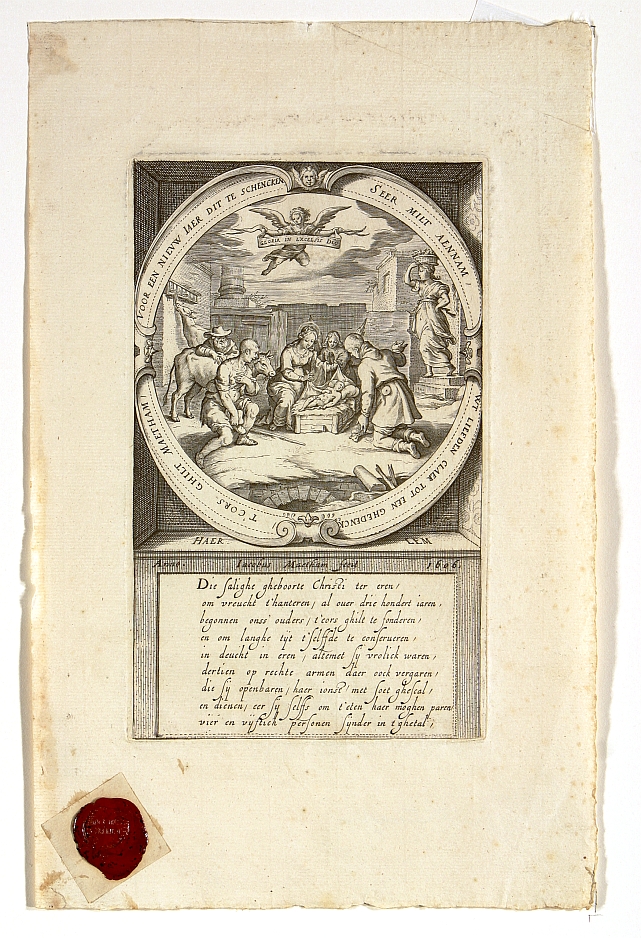 VOOR EEN NIEUW IAER DIT TE SCHENCKEN
SEER MILT AENNAM,
WT LIEFDEN CLAER TOT EEN GHEDENCK
T'CORS GHILT MAETHAM,
GLORIA IN EXCELSIS DEO
HAER LEM
Anno. Iacobus Maetham fecit 1606.
Die salighe gheboorte Christi ter eren,
om vreucht t'hanteren, al over drie hondert iaren,
begonnen onse ouders, t'cors ghilt te fonderen,
en om langhe tijt t'selffde te conserveren,
in deucht in eren, altemet sy vrolick waren,
dertien op rechte armen daer oock vergaren,
die sy openbaren, haer ionst, met soet ghescal,
en dienen, eer sy selffs om t'eten haer moghen paren
vier en vijftich personen synder in t'ghetal,